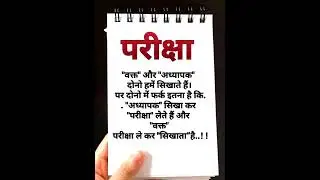 परीक्षा
"वक्त" और "अध्यापक"
दोनो हमें सिखाते हैं।
पर दोनो में फर्क इतना है कि.
. "अध्यापक" सिखा कर
"परीक्षा" लेते हैं और
"वक्त"
परीक्षा ले कर "सिखाता"है..! !